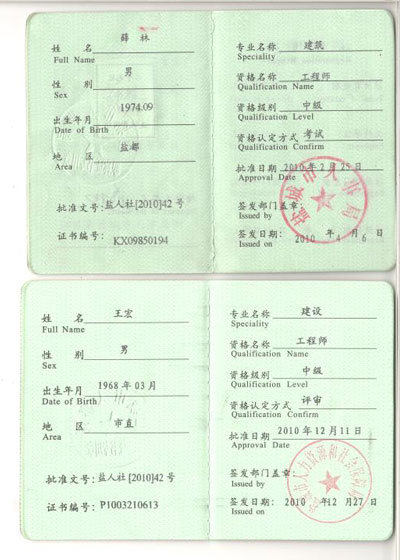 姓 名 薛 林
Full Name
性 别 男
Sex
1974.09
出生年月
Date of Birth
地 区 盐都
Area
批准文号:盐人社[2010]42号
证书编号: KX09850194
专业名称 建筑
Speciality
资格名称 工程师
Qualification Name
资格级别 中级
Qualification Level
资格认定方式 考试
Qualification Confirm
批准日期 2010年2月25日
Approval Date
签发部门盖章:
Issued by
签发日期: 2010年 4月 6日
Issued on
盐城市人事局
姓 名 王宏
Full Name
性 别 男
Sex
出生年月 1968年03月
Date of Birth
地 区 市直
Area
批准文号:盐人社[2010]42号
证书编号: P1003210613
专业名称 建设
Speciality
资格名称 工程师
Qualification Name
资格级别 中级
Qualification Level
资格认定方式 评审
Qualification Confirm
批准日期 2010年12月11日
Approval Date
签发部门盖章:
Issued by
签发日期: 2010年 12月27日
Issued on
市人力资源和社会保障局